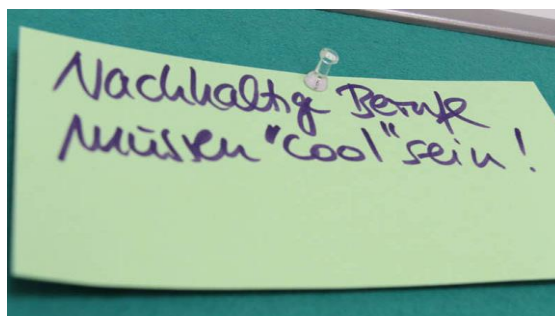 Nachhaltige Berufe
müssen "cool" sein!